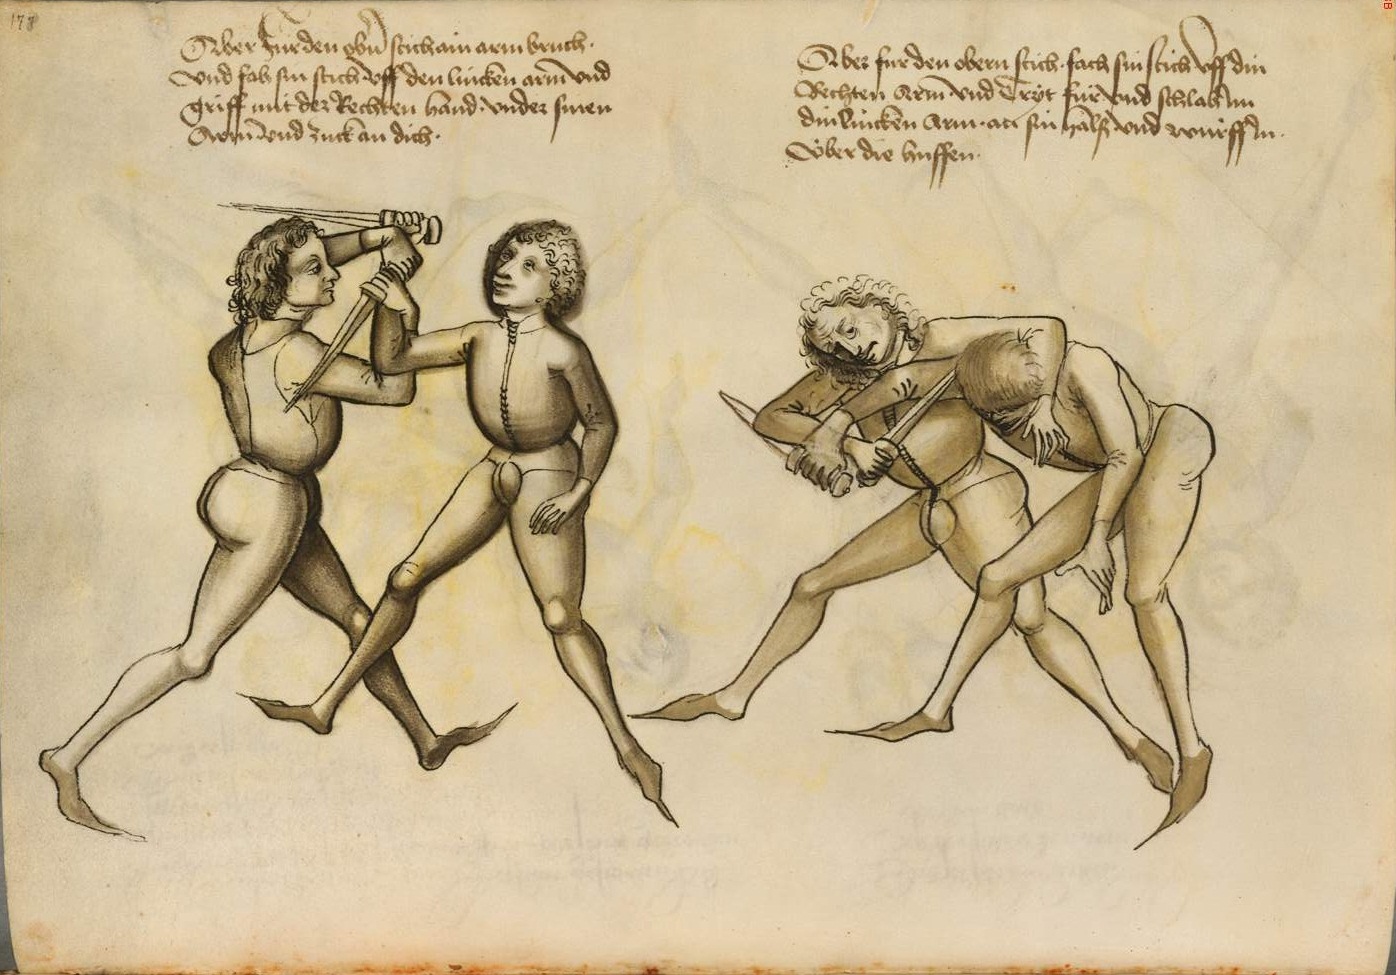 178
Aber für den obñ stich ain arm bruch·
vnd fach sin stich vff den lincken arm vnd
griff mit der Rechten hand vnder sinen
Arm vnd zuck an dich·
Aber für den obern stich fach sin stich vff din
Rechten Arm vnd Tryt für vnd schlach im
din lincken Arm an sin hals vnd würff in·
Vber die huffen·